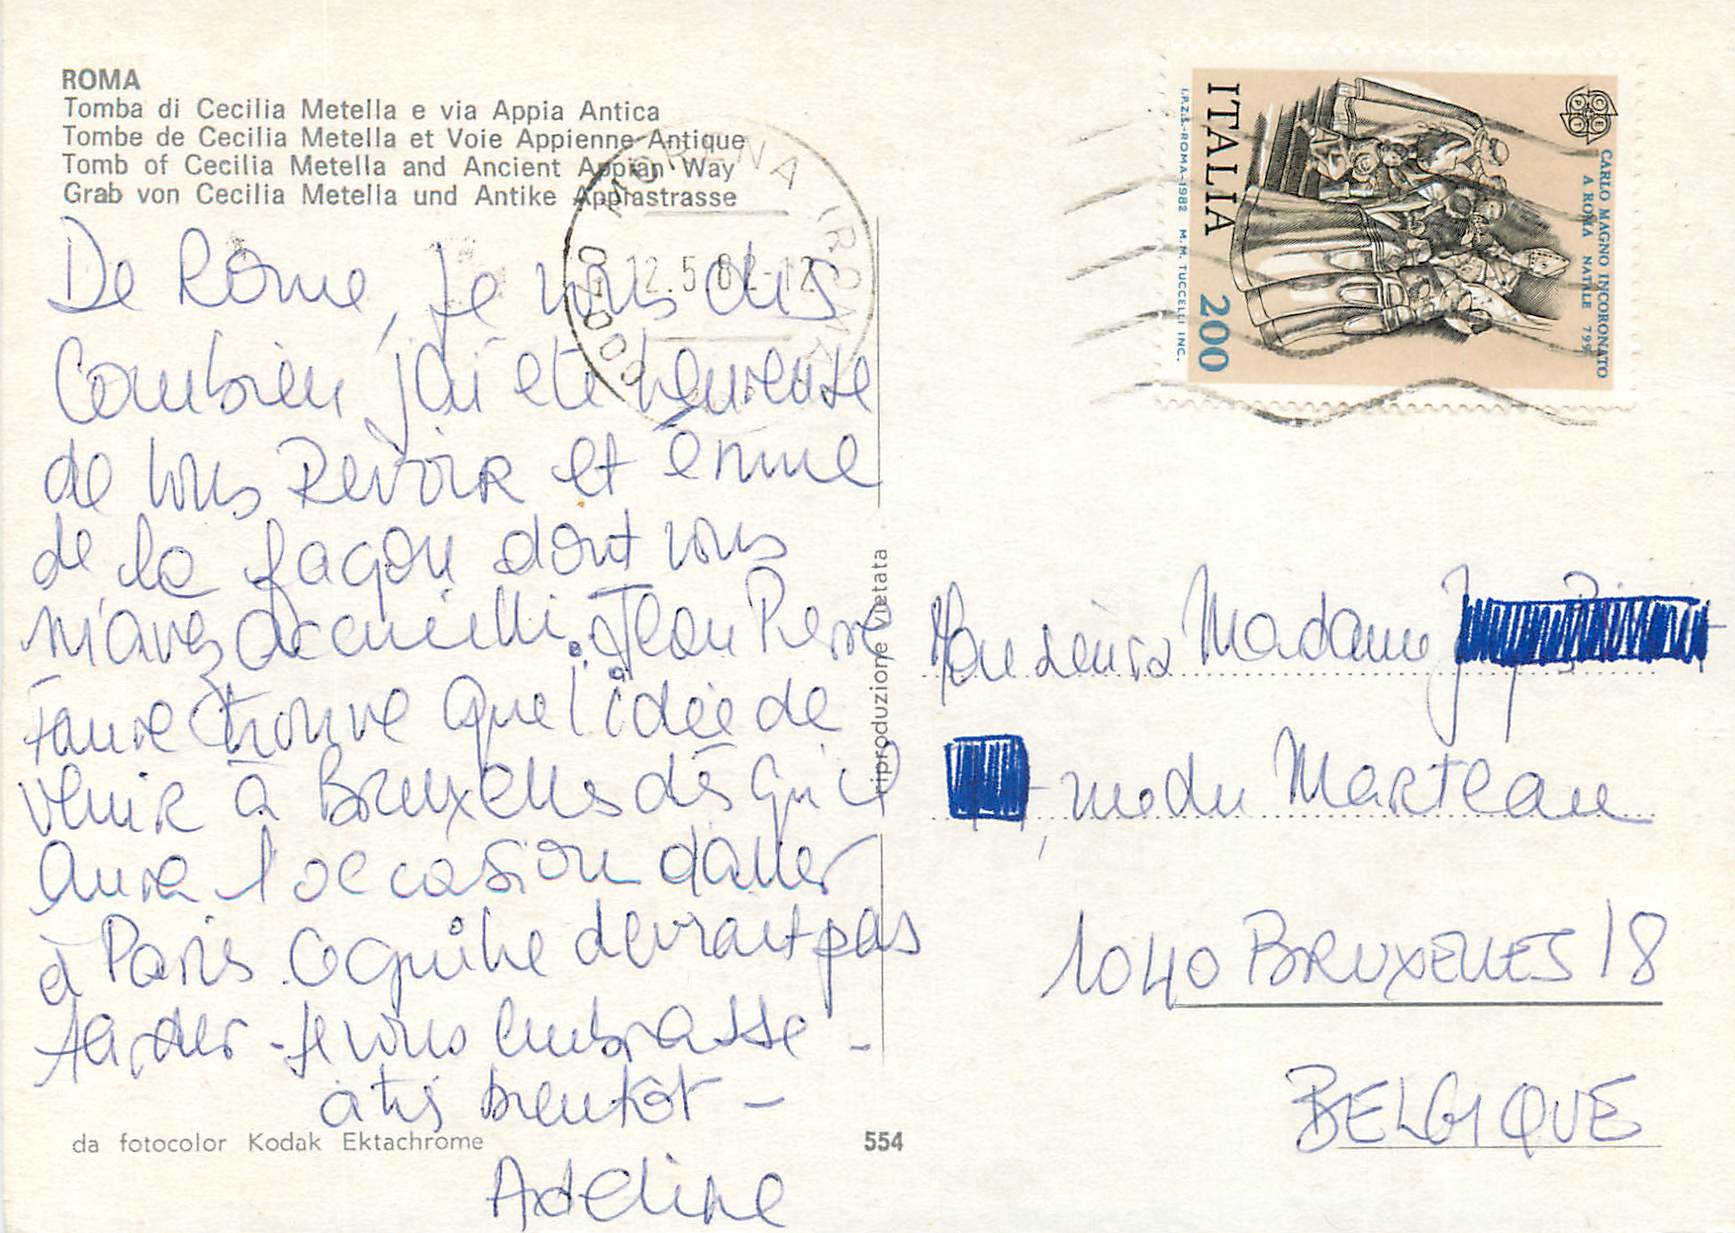 ROMA
Tomba di Cecilia Metella e via Appia Antica
Tombe de Cecilia Metella et Voie Appienne Antique
Tomb of Cecilia Metella and Ancient Appian Way
Grab von Cecilia Metella und Antike Appiastrasse
De Rome, je vous dis
combien j'ai été heureuse
de vous Revoir et émue
de la façon dont vous
m'avez accueilli. Jean Pierre
trouve que l'idée de
venir à Bruxelles dès qu'il
aura l'occasion d'aller
à Paris ce qui ne devrait pas
tarder - Je vous embrasse -
à très bientôt -
Adeline
da fotocolor Kodak Ektachrome
554
riproduzione vietata
12.5.82-12
00040
(ROMA)
ITALIA
200
CARLO MAGNO INCORONATO
A ROMA NATALE 799
CEPT
I.P.Z.S.-ROMA-1982 M.M. TUCCELLI INC.
Monsieur Madame
, rue du Marteau
1040 BRUXELLES 18
BELGIQUE